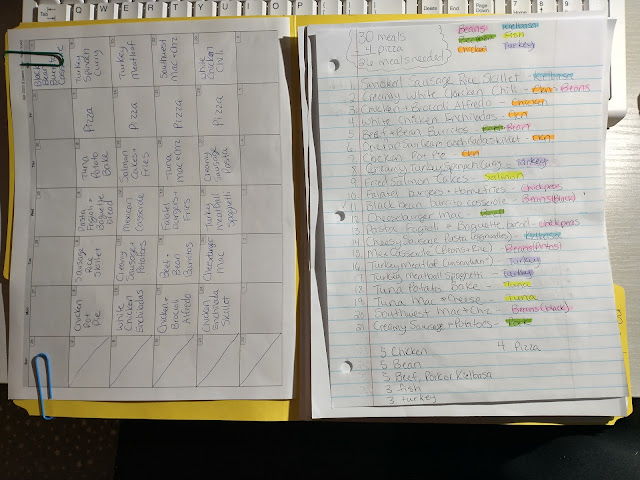 30 meals
- 4 pizza
26 meals needed
Beans
Kielbasa
Fish
Chicken
Turkey
1 Smoked Sausage Rice Skillet - Kielbasa
2 Creamy White Chicken Chili - Ckn + Beans
3 Chicken + Broccoli Alfredo - Chicken
4 White Chicken Enchiladas - Ckn
5 Beef + Bean Burritos - Bean
Chicken Pot Pie Ckn
8 Creamy Turkey Spinach Curry - Turkey
9 Fried Salmon Cakes - Salmon
10 Falafel burgers + Homefries - Chickpeas
11 Black bean burrito casserole - Beans (Black)
12 Cheeseburger Mac -
13 Pasta Fagioli + Baguette bread - Chickpeas
14 Cheesy Sausage Pasta - Kielbasa
15 Mex Casserole - Beans (Pintos)
16 Turkey Meatloaf - Turkey
17 Turkey Meatball Spaghetti - Turkey
18 Tuna Potato Bake - Tuna
19 Tuna Mac + Cheese - Tuna
20 Southwest Mac + Chz - Beans (black)
21 Creamy Sausage + Potatoes -
5 Chicken
4 Pizza
5 Bean
5 Beef, Pork or Kielbasa
3 fish
3 turkey
Black Bean Burrito Casserole
Turkey Spinach Curry
Turkey Meatloaf
Southwest Mac + Chz
White Chicken Chili
Pizza
Pizza
Pizza
Pizza
Tuna Potato Bake
Salmon Cakes + Fries
Tuna Mac + Chz
Creamy Sausage Pasta
Pasta Fagioli + Baguette Bread
Mexican Casserole
Falafel Burgers + Fries
Turkey Meatball Spaghetti
Sausage Rice Skillet
Creamy Sausage + Potatoes
Beef + Bean Burritos
Cheeseburger Mac
Chicken Pot Pie
White Chicken Enchiladas
Chicken + Broccoli Alfredo
Chicken Enchilada Skillet